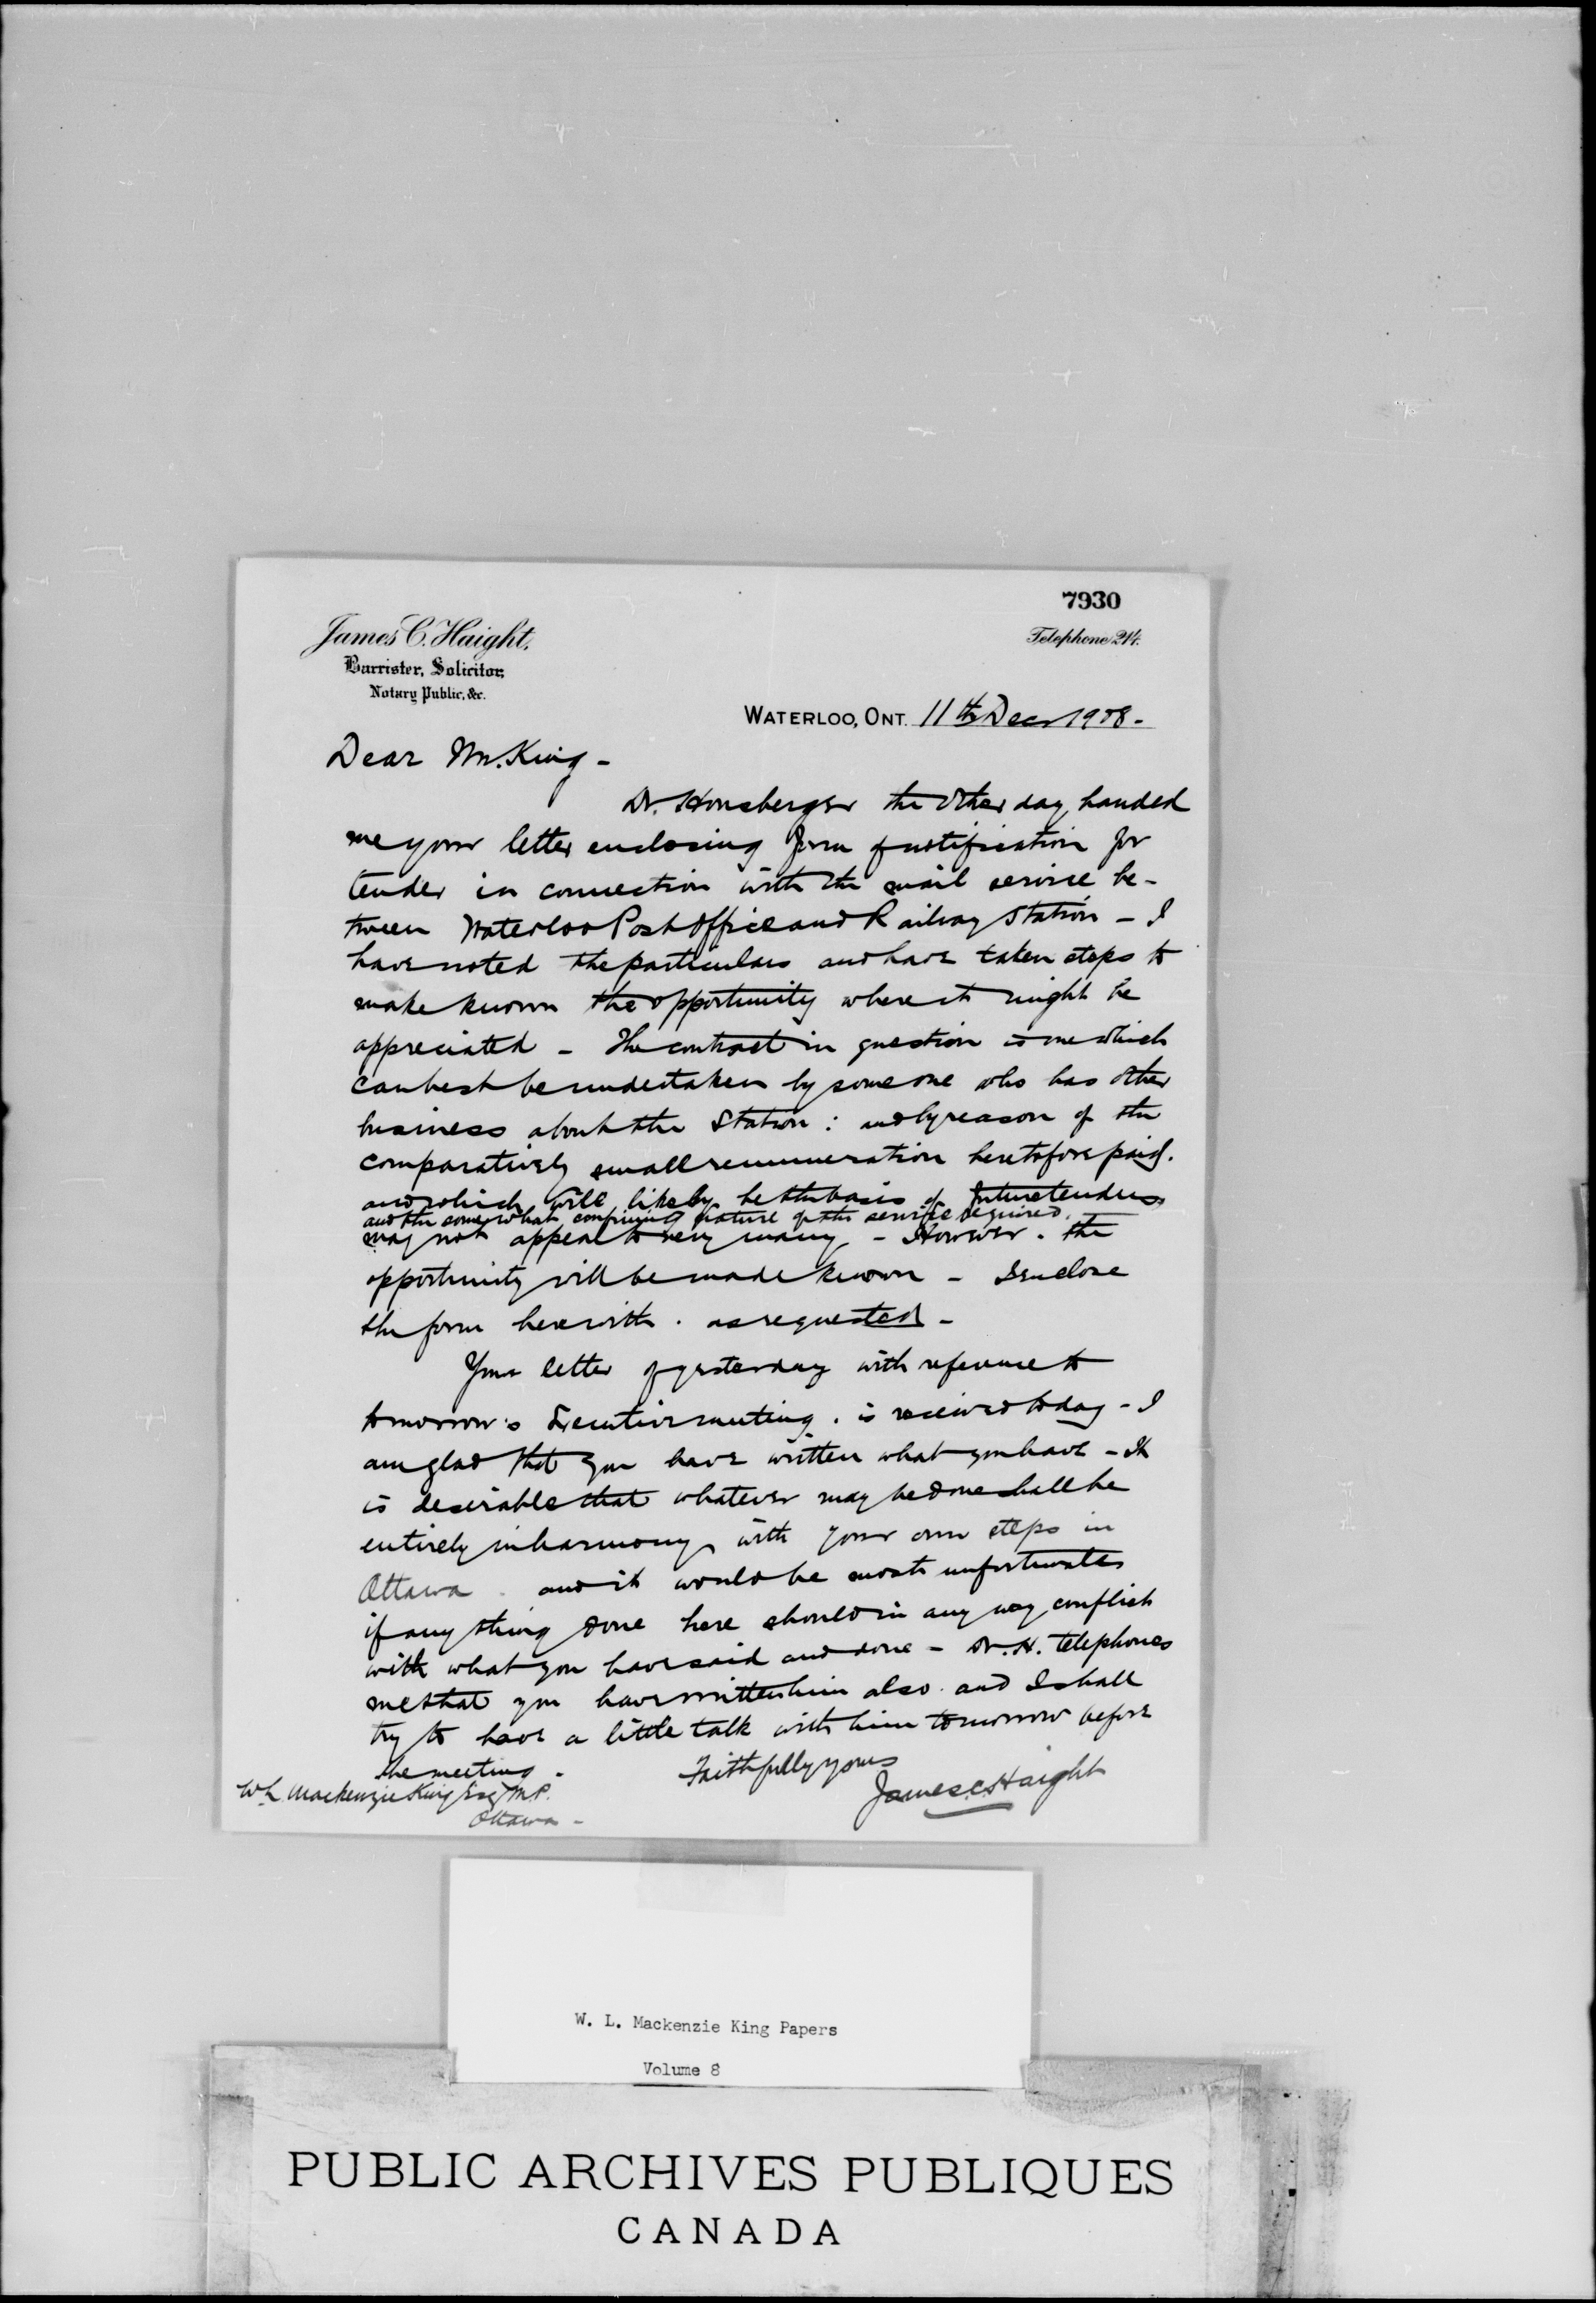 7930
James C. Haight,
Barrister, Solicitor,
Notary Public, &c.
Telephone 214.
WATERLOO, ONT. 11th Decr 1908.
Dear Mr. King -
Dr. Honsberger the other day handed
me your letter enclosing form of notification for
tender in connection with the mail service be-
tween Waterloo Post Office and Railway Station - I
have noted the particulars and have taken steps to
make known the opportunity where it might be
appreciated - The contract in question is one which
can best be undertaken by someone who has other
business about the Station : and by reason of the
comparatively small remuneration heretofore paid.
and which will likely be the basis of future tenders
and the somewhat confining nature of the service required.
may not appeal to very many - However. the
opportunity will be made known - I enclose
the form herewith. as requested -
Your letter of yesterday with reference to
tomorrow's Executive meeting. is received today - I
am glad that you have written what you have - It
is desirable that whatever may be done shall be
entirely in harmony with your own steps in
Ottawa and it would be most unfortunate
if any thing done here should in any way conflict
with what you have said and done - Dr. H. telephones
me that you have written him also. and I shall
try to have a little talk with him tomorrow before
the meeting.
Faithfully yours
James C. Haight
W L. Mackenzie King Esq M.P.
Ottawa -
W. L. Mackenzie King Papers
Volume 8
PUBLIC ARCHIVES PUBLIQUES
CANADA